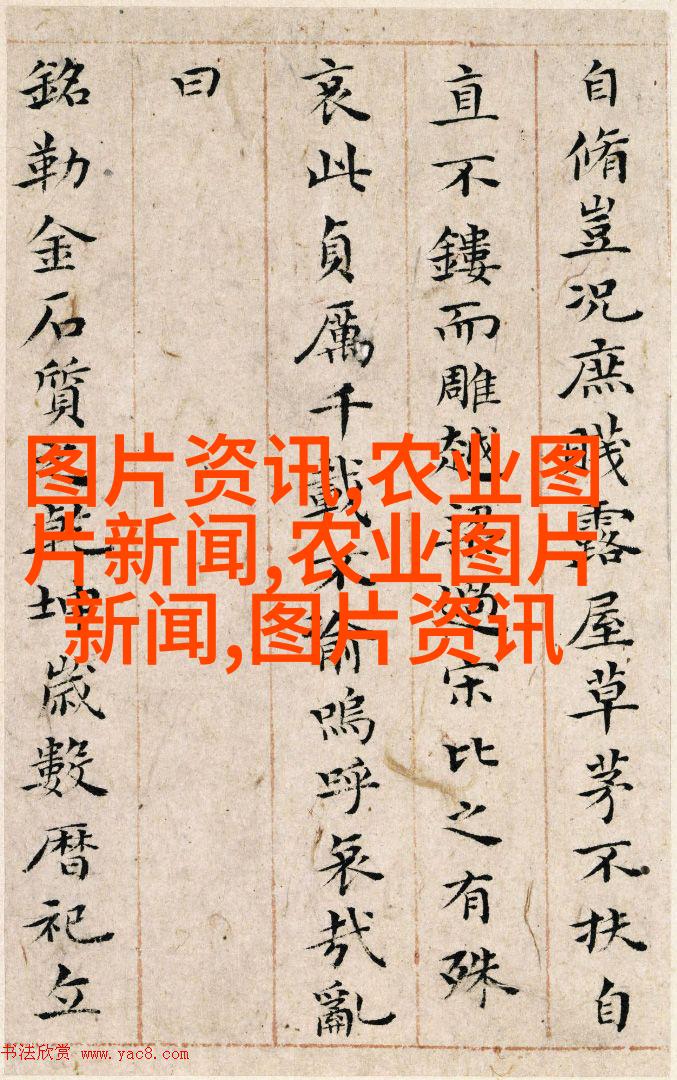 自脩豈况庶賤露屋草茅不扶自
直不鏤而雕越梁過宋比之有殊
哀此貞厲千載不渝嗚呼哀哉亂
曰
銘勒金石質之乾坤歲數暦祀立
图片资讯,农业图
片新闻,农业图片
新闻,图片资讯
书法欣赏 www.yac8.com